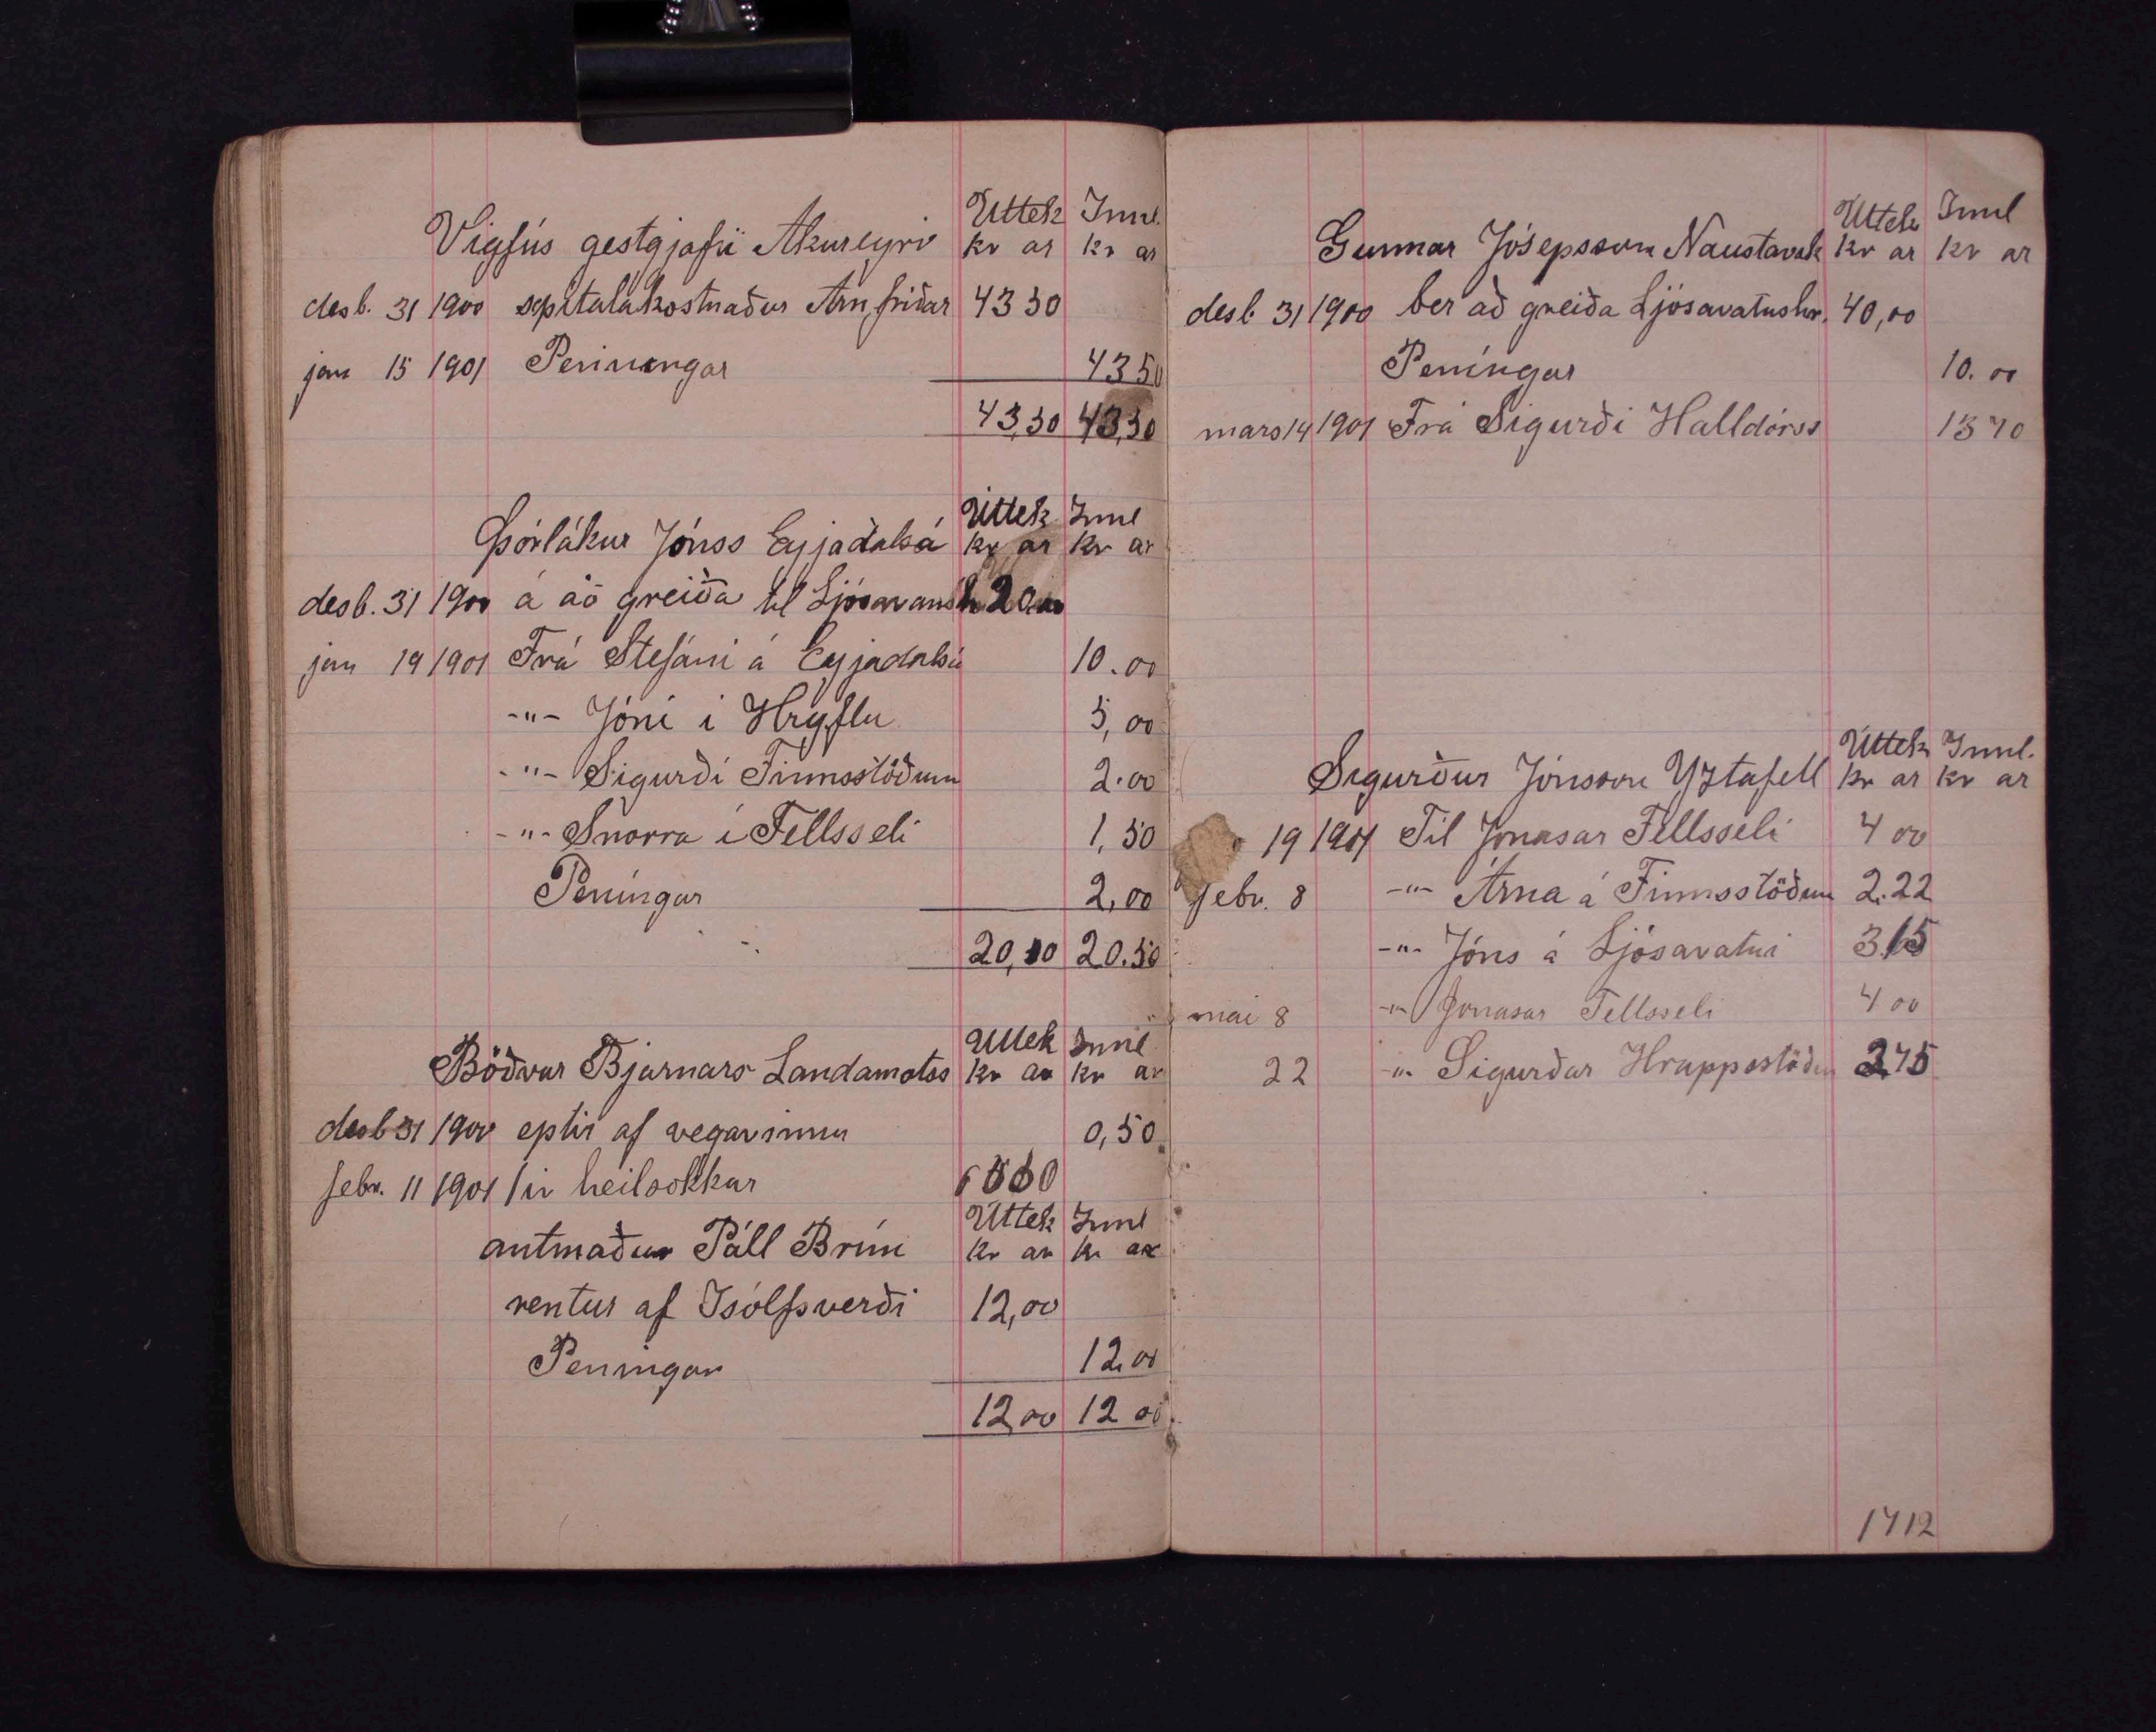 Úttek Innl.
Vigfús gestgjafi Akureyri kr ar kr ar
desb. 31 1900 spítalakostnaður Arnfríðar 43 50
jan 15 1901 Peningar 43 50
43,50 43,50
Úttek Innl
Þórlákur Jónss Eyjadalsá kr ar kr ar
desb. 31 1900 á að greiða til Ljósavansh
jan 19 1901 Frá Stefáni á Eyjadalsá 10.00
-"- Jóni í Hryflu 5,00
-"- Sigurði Finnsstöðum 2.00
-"- Snorra í Fellsseli 1,50
Peningar 2,00
20,50 20.50
Úttek Innl
Böðvar Bjarnars Landamotss kr ar kr ar
desb 31 1900 eptir af vegavinnu 0,50
febr. 11 1901 /ir heilsokkar
Úttek Innl
amtmaður Páll Brím kr ar kr ar
rentur af Ísólfsverði 12,00
Peningar 12.00
12,00 12 00
Úttek Innl
Gunnar Jósepsson Naustavík kr ar kr ar
desb 31 1900 ber að greiða Ljósavatnshr. 40,00
Peningar 10.00
mars 14 1901 Frá Sigurði Halldórss 13 70
Úttek Innl.
Sigurður Jónsson Yztafell kr ar kr ar
19 1901 Til Jónasar Fellsseli 4 00
febr. 8 -"- Árna á Finnsstöðum 2.22
-"- Jóns á Ljósavatni 3.15
mai 8 -"- Jónasar Fellsseli 4 00
22 -"- Sigurðar Hrappsstöðum 3.75
1712